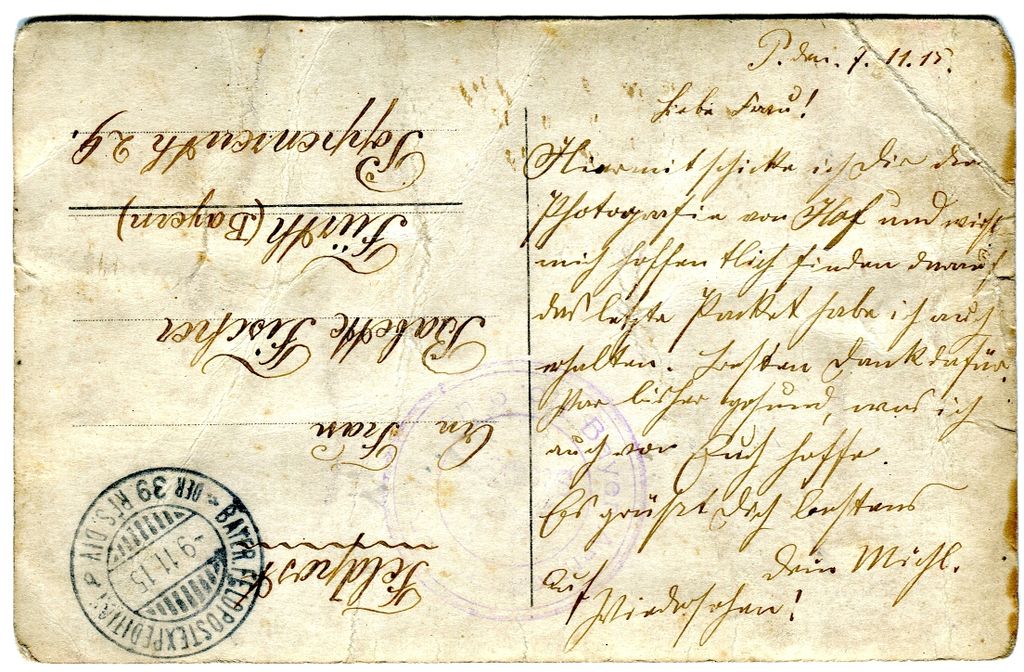 P. den. 7. 11. 15.
Liebe Frau!
Hiermit schicke ich Dir die
Photografie von Hof und wirst
mich hoffentlich finden darauf,
das letzte Packet habe ich auch
erhalten. Besten Dank dafür.
bisher gesund, was ich
auch von Euch hoffe.
Es grüßt Dich bestens
dein Michl.
Auf
Wiedersehen!
Feldpost
An Frau
Babette Fischer
Fürth (Bayern)
Poppenreuth 29.
BAYER. FELDPOSTEXPEDITION
DER 39 RES. DIV.
-9.11.15
Bayer.